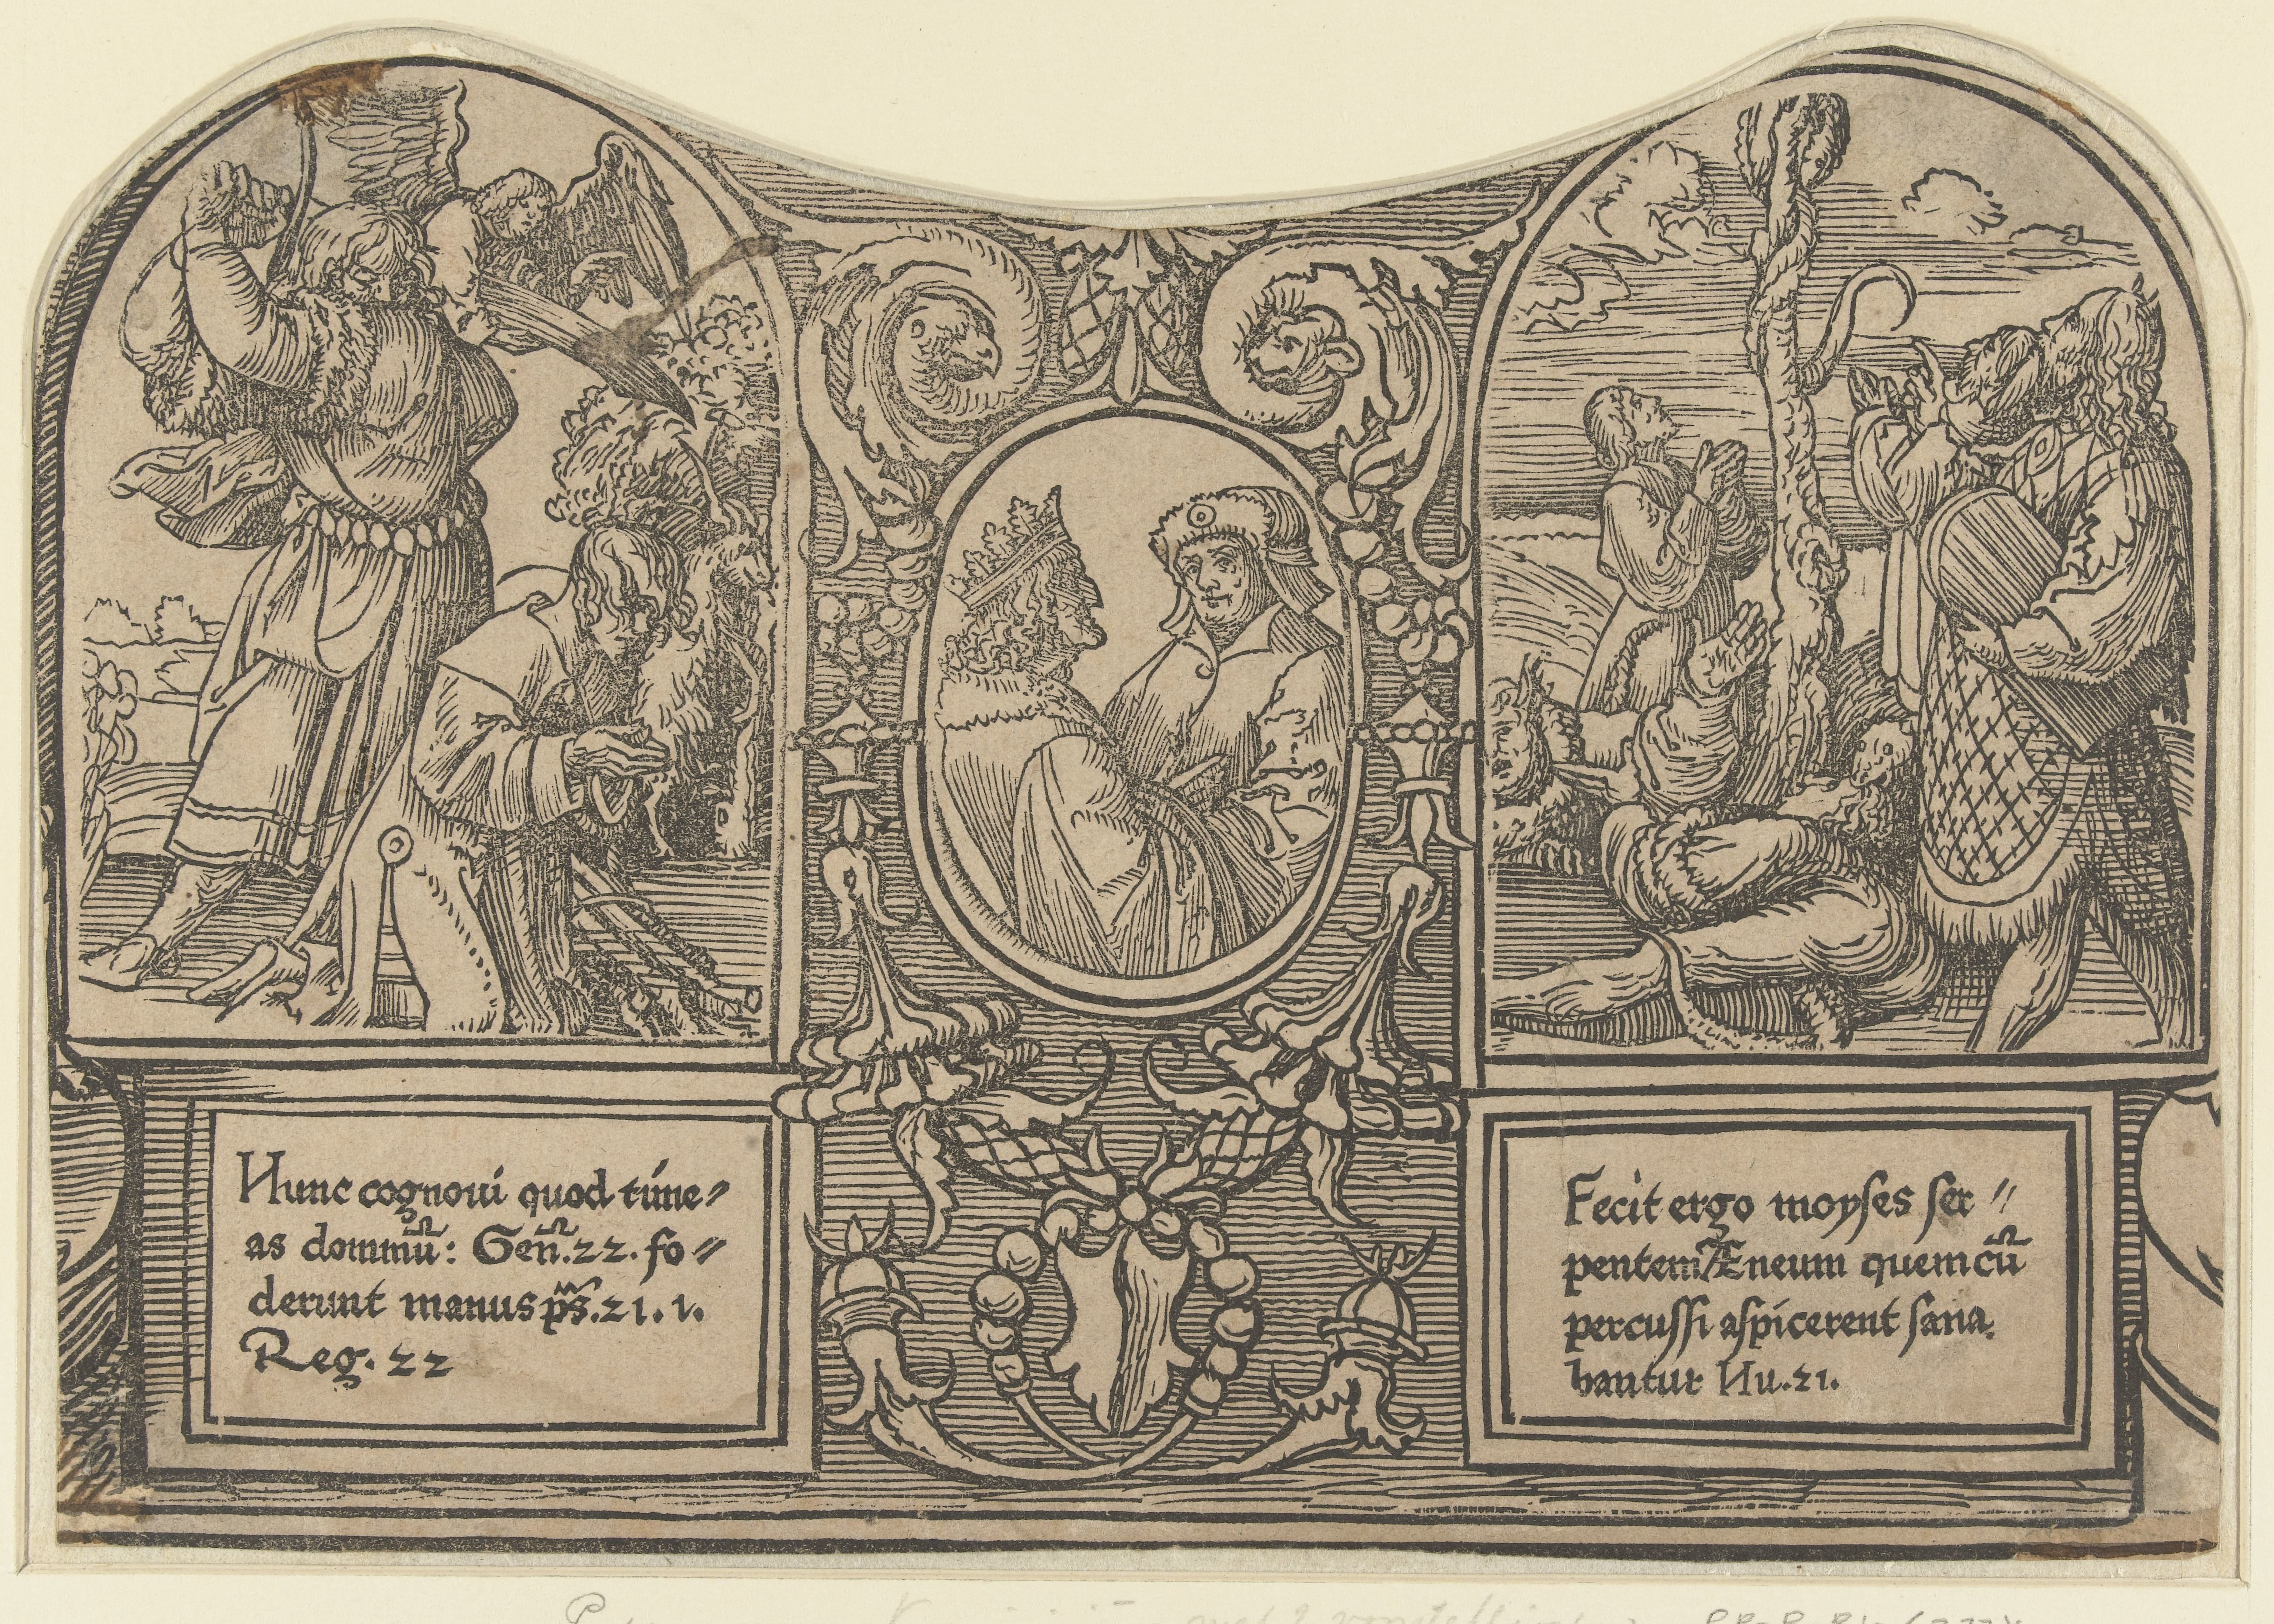 Nunc cognoui quod time〃
as dominũ: Geñ.22. fo〃
derunt manus ps̃.21.1.
Reg. 22
Fecit ergo moyses ser〃
pentem Æneum quem cũ
percussi aspicerent sana
bantur Nu.21.